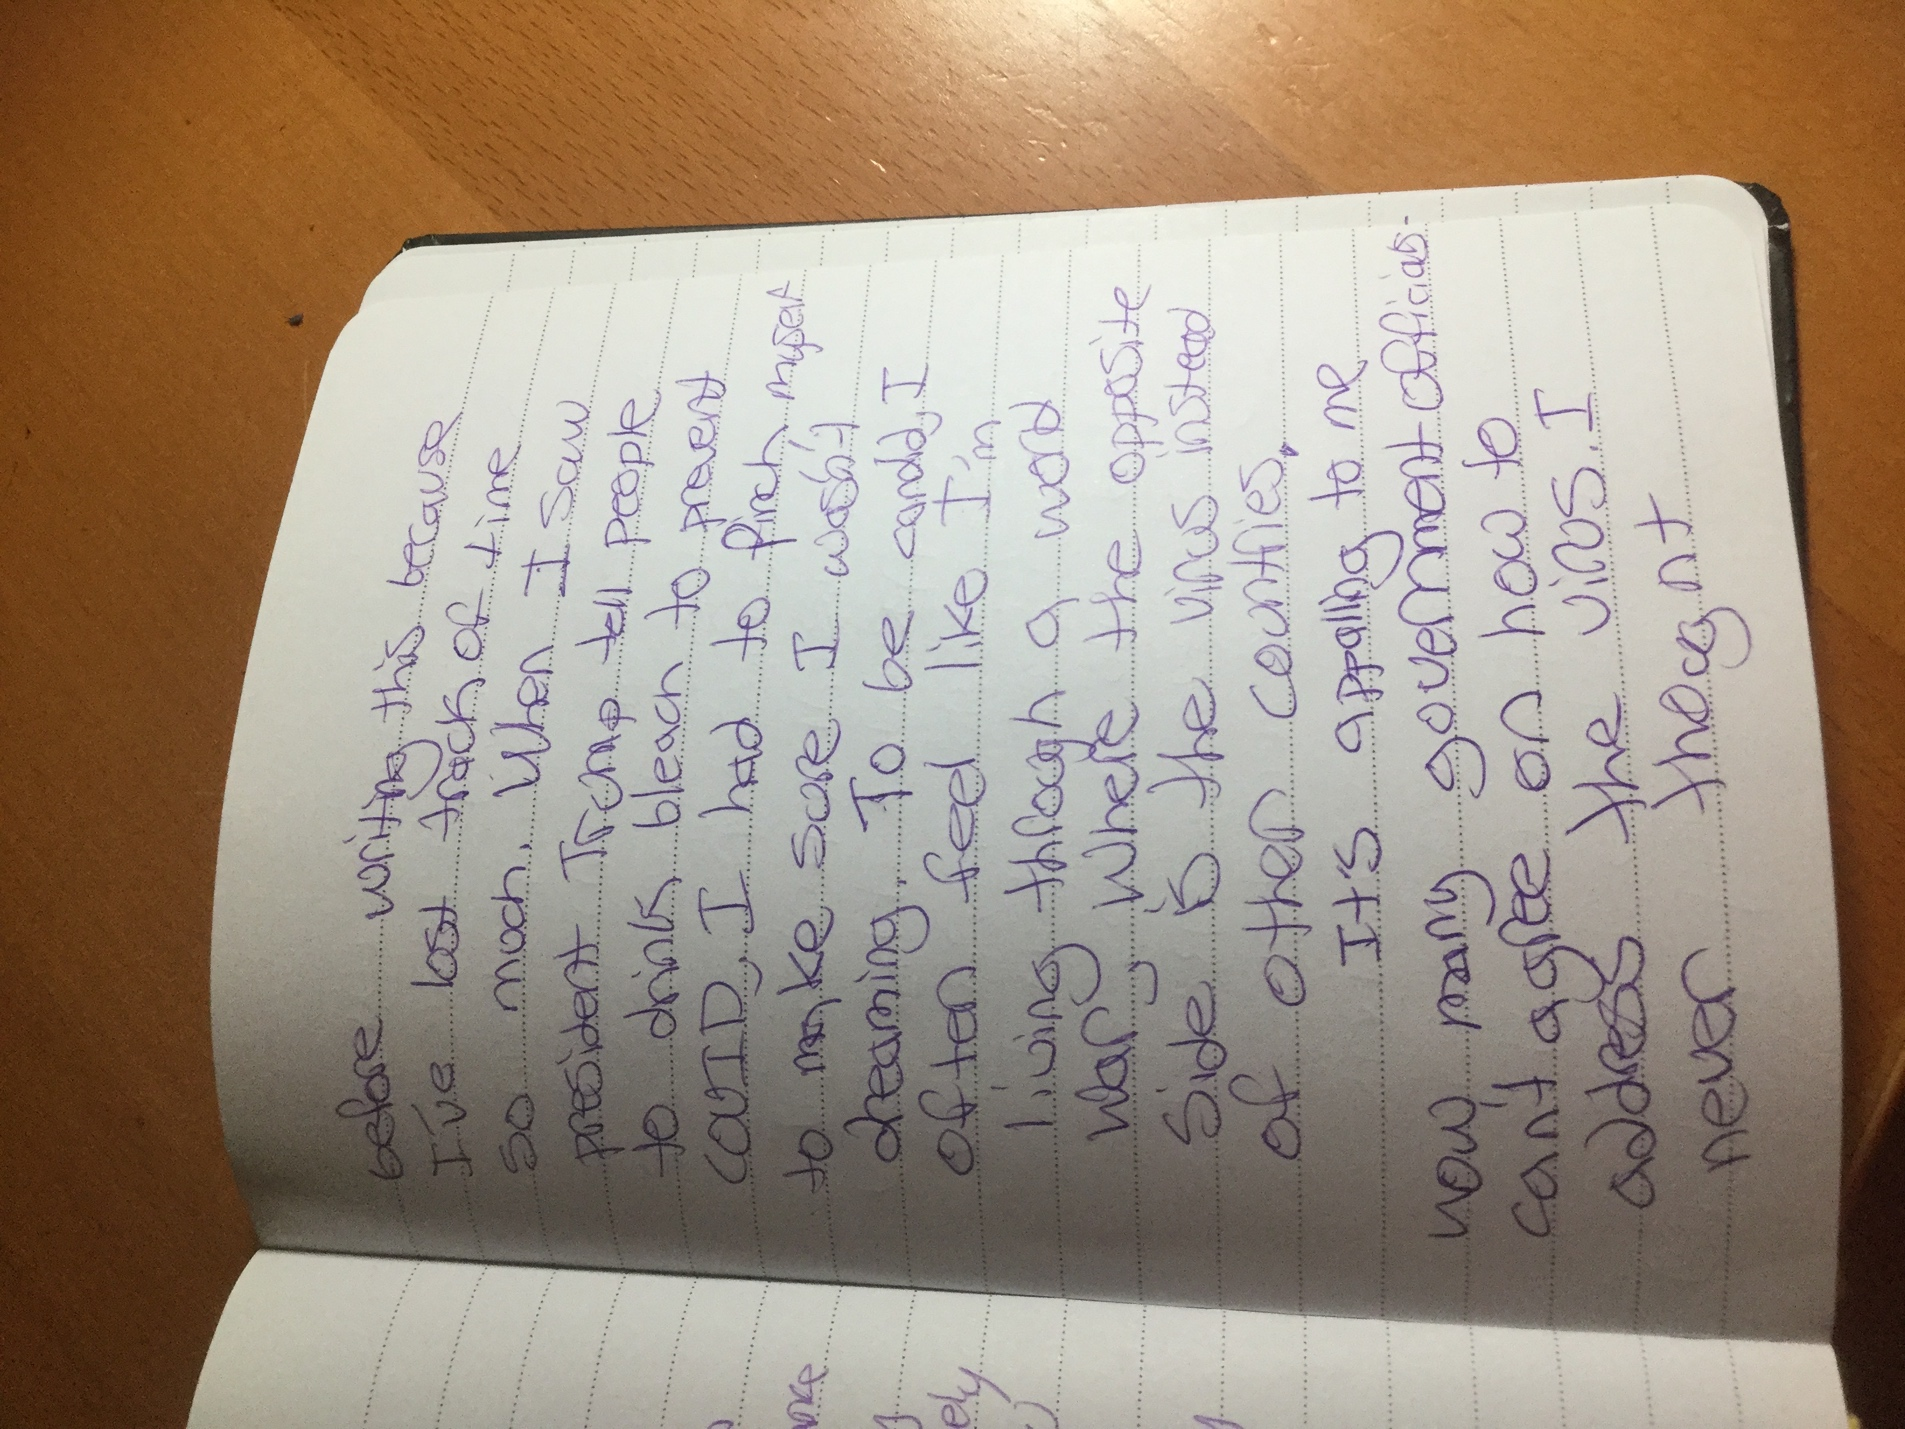 before writing this because
I've lost track of time
so much. When I saw
president Trump tell people
to drink bleach to prevent
COVID, I had to pinch myself
to make sure I wasn't
dreaming. To be candid, I
often feel like I'm
living through a word
war, where the opposite
side is the virus instead
of other countries.
It's appalling to me
how many government officials
can't agree on how to
address the virus. I
never thought
ely